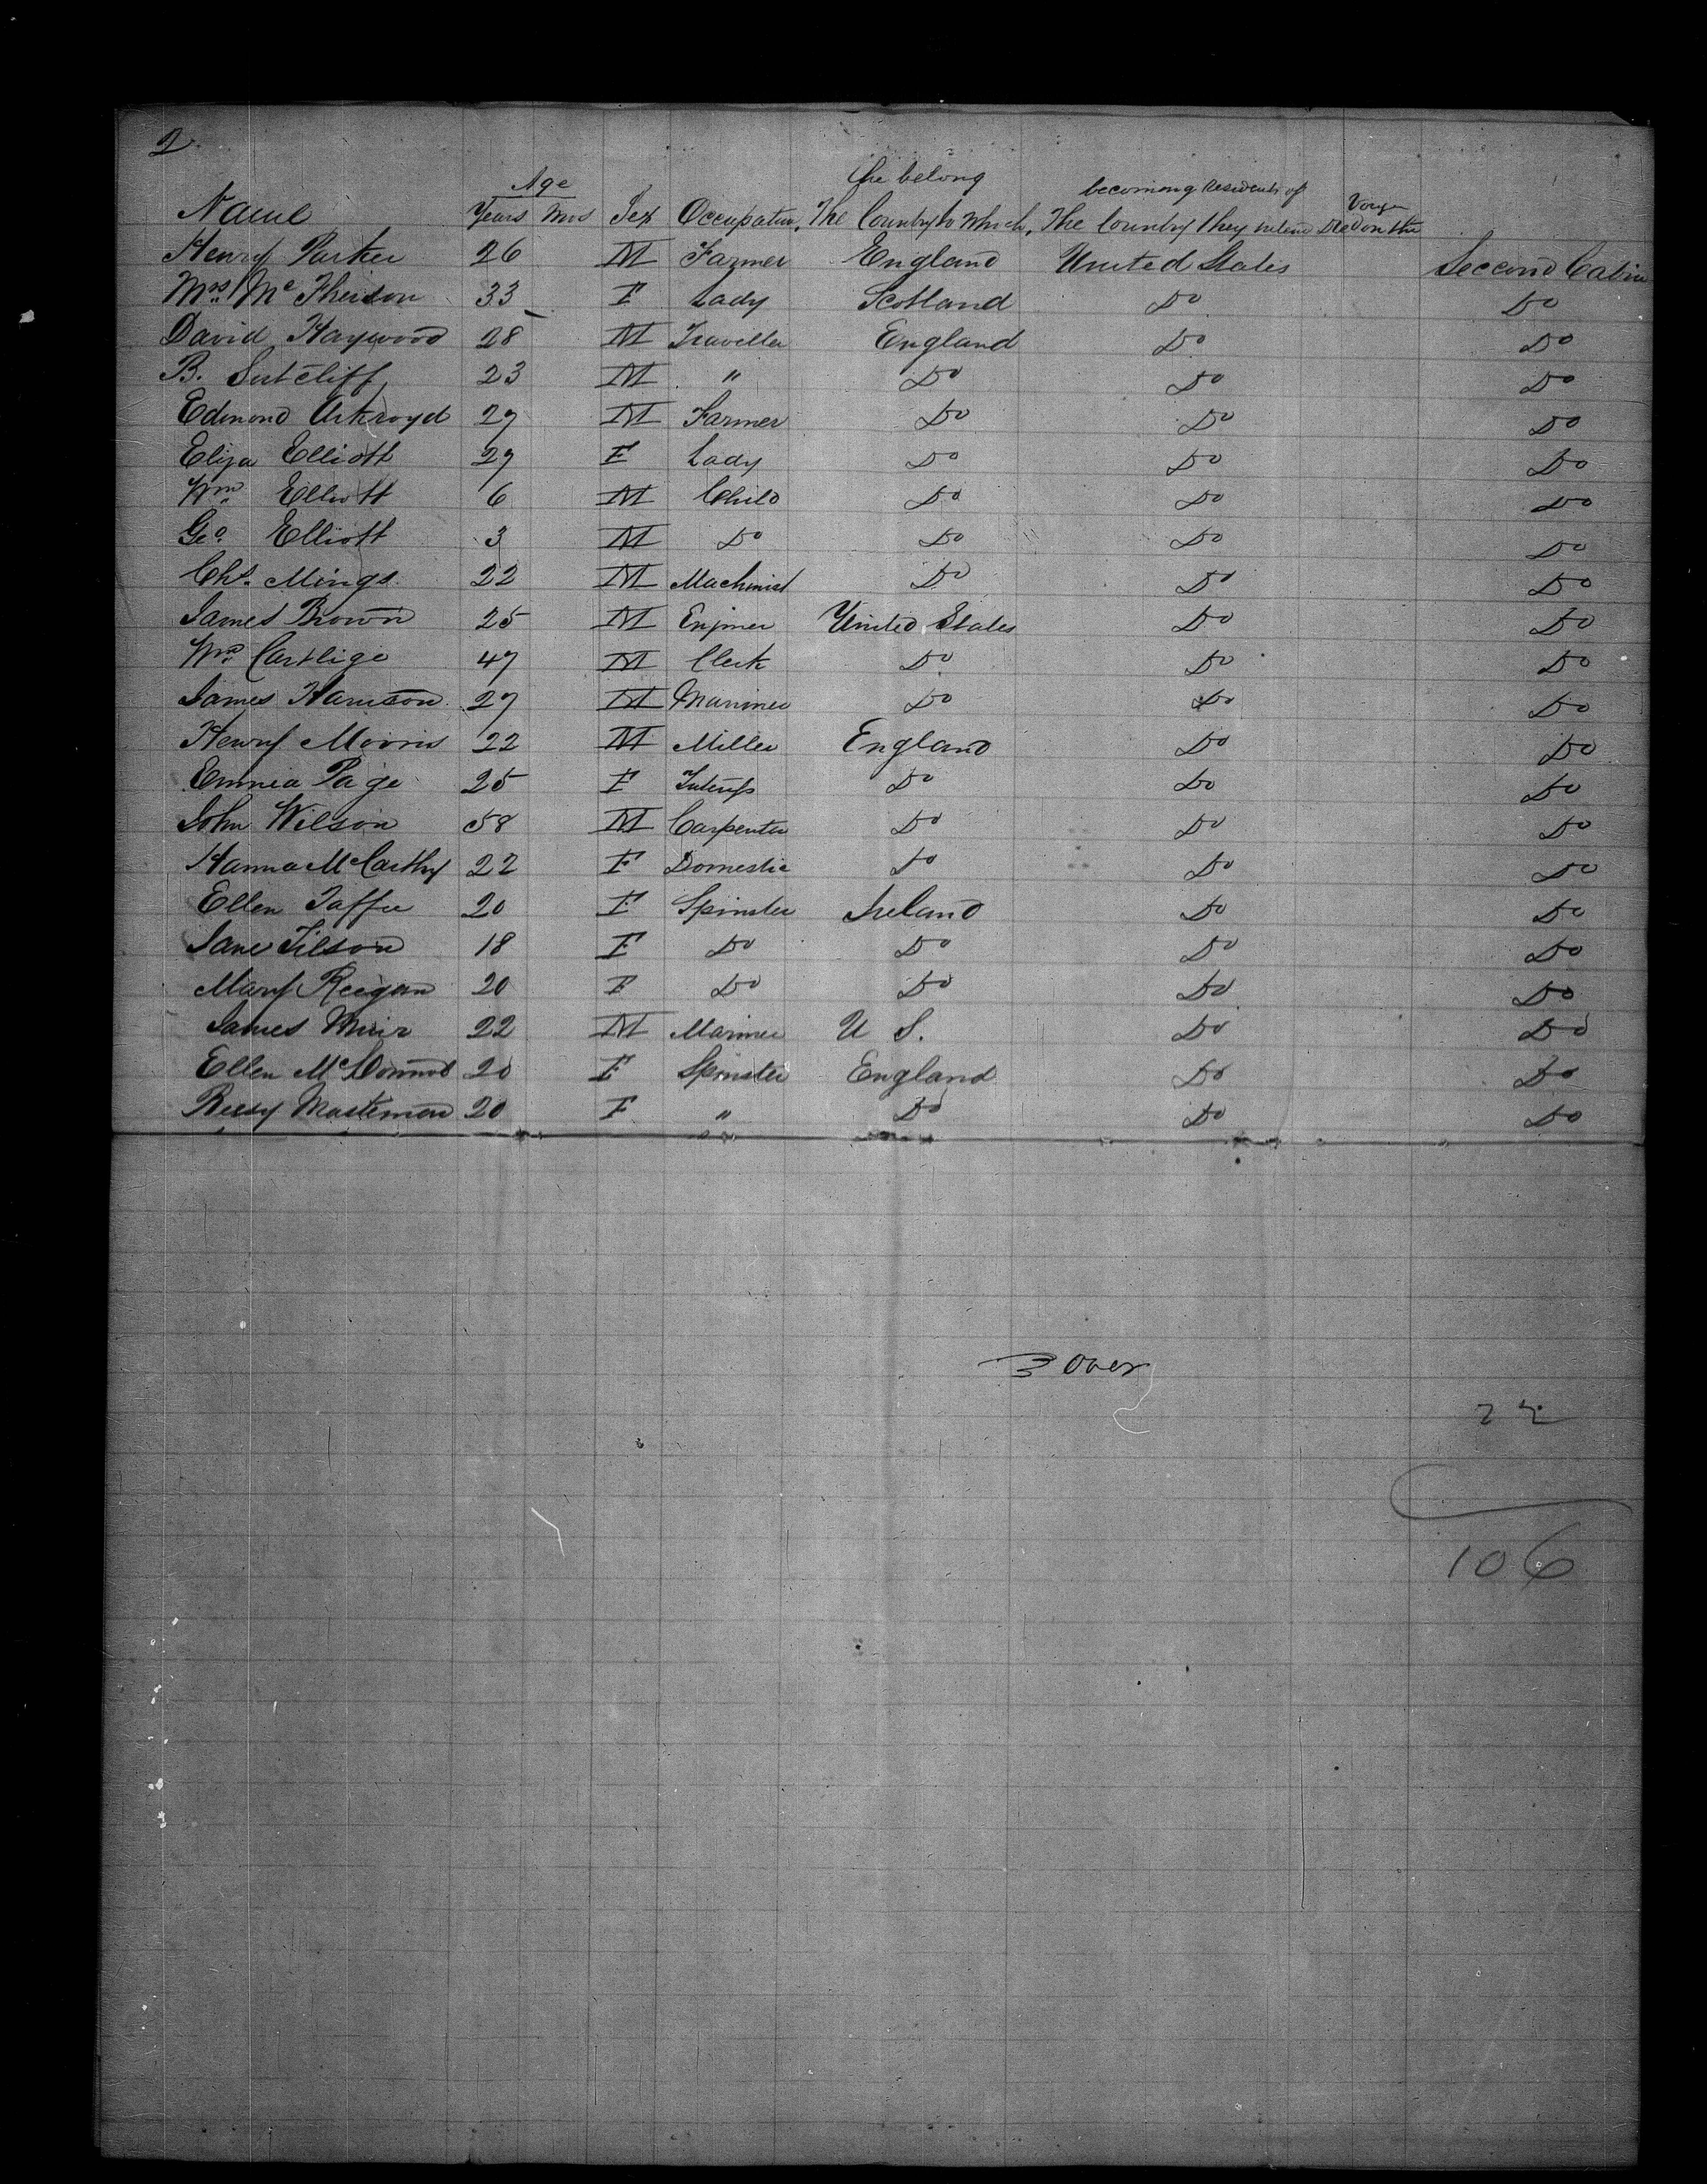 2
Age he belong becoming Residents of Voyge
Name Years Mos Sex Occupation, The Country to Which, The Country they intend Died on the
Henry Parker 26 M Farmer England United States Seccond Cabin
Mrs Mc 33 F Lady Scotland Do Do
David Haywood 28 M Traveller England Do Do
B. Sutcliff 23 M " Do Do Do
Edmond Arkroyd 27 M Farmer Do Do Do
Eliza Elliott 27 F Lady Do Do Do
Wm Elliott 6 M Child Do Do Do
Geo. Elliott 3 M Do Do Do Do
Chs. Mings 22 M Machinist Do Do Do
James Brown 25 M United States Do Do
Wm Cartlige 47 M Clerk Do Do Do
James Harrison 27 M Mariner Do Do Do
Henry Morris 22 M Miller England Do Do
Emma Page 25 F Do Do Do
John Wilson 58 M Carpenter Do Do Do
Hanna McCarthy 22 F Domestic Do Do Do
Ellen Taffee 20 F Spinster Ireland Do Do
Jane Tilson 18 F Do Do Do Do
Mary Reegan 20 F Do Do Do Do
James Muir 22 M Mariner U S. Do Do
Ellen 20 F Spinster England Do Do
Bessy Masterman 20 F " Do Do Do
Over
22
106